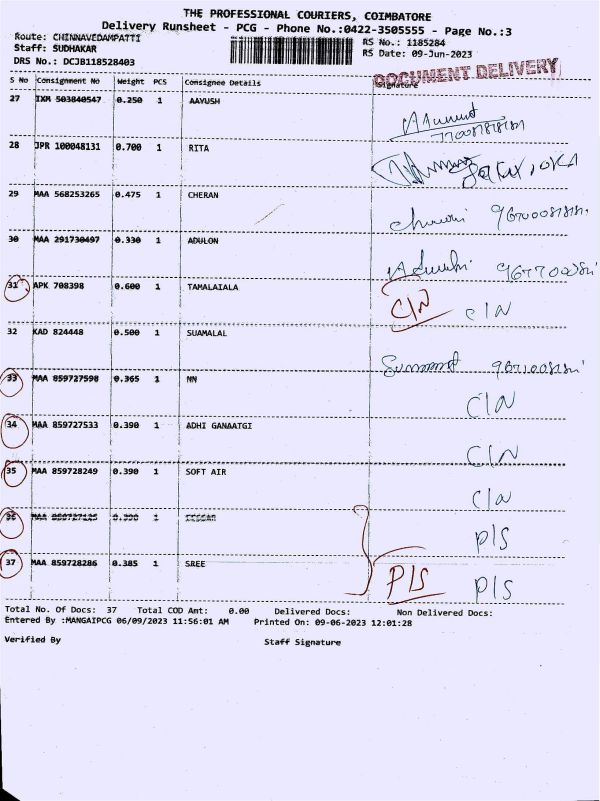 THE PROFESSIONAL COURIERS, COIMBATORE
Delivery Runsheet - PCG - Phone No.:0422-3505555 - Page No.:3
Route: CHINNAVEDAMPATTI
RS No.: 1185284
Staff: SUDHAKAR
RS Date: 09-Jun-2023
DRS No.: DCJB118528403
DOCUMENT DELIVERY
S No Consignment No Weight PCS Consignee Details Signature
27 IXM 503840547 0.250 1 AAYUSH
28 JPR 100048131 0.700 1 RITA
29 MAA 568253265 0.475 1 CHERAN
30 MAA 291730497 0.330 1 ADULON
31 APK 708398 0.600 1 TAMALAIALA C/N C/N
32 KAD 824448 0.500 1 SUAMALAL
33 MAA 859727598 0.365 1 NN C/N
34 MAA 859727533 0.390 1 ADHI GANAATGI C/N
35 MAA 859728249 0.390 1 SOFT AIR C/N
36 MAA 0.390 1 P/S
37 MAA 859728286 0.385 1 SREE P/S P/S
Total No. Of Docs: 37 Total COD Amt: 0.00 Delivered Docs: Non Delivered Docs:
Entered By :MANGAIPCG 06/09/2023 11:56:01 AM Printed On: 09-06-2023 12:01:28
Verified By Staff Signature